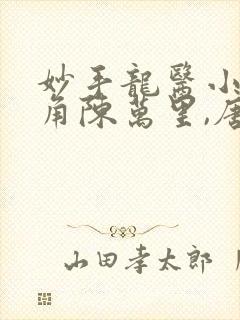 妙手龍醫小
角陳萬里,唐
山田孝太郎